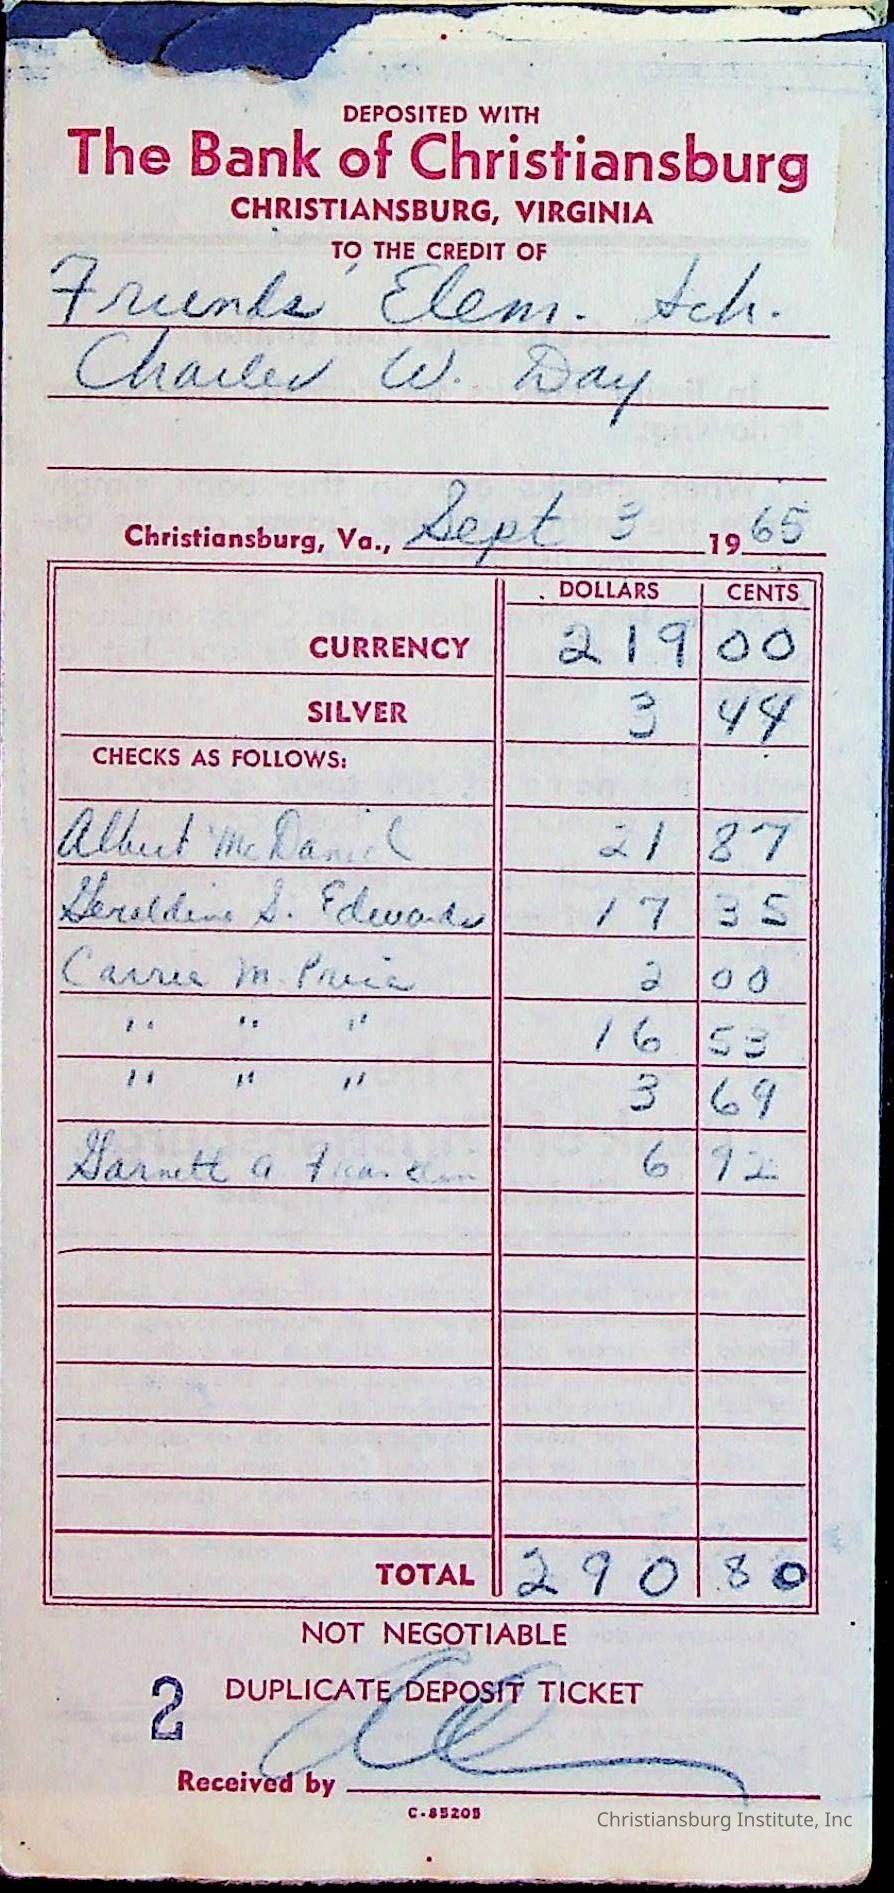 DEPOSITED WITH
The Bank of Christiansburg
CHRISTIANSBURG, VIRGINIA
TO THE CREDIT OF
Friends' Elem. Sch.
Charles W. Day
Christiansburg, Va., Sept 3 1965
DOLLARS CENTS
CURRENCY 219 00
SILVER 3 44
CHECKS AS FOLLOWS:
Albert McDaniel 21 87
Geraldine S. Edwards 17 35
Carrie M. Price 2 00
" " " 16 53
" " " 3 69
Garnett A 6 92
TOTAL 290 80
NOT NEGOTIABLE
2 DUPLICATE DEPOSIT TICKET
Received by
C-85205
Christiansburg Institute, Inc